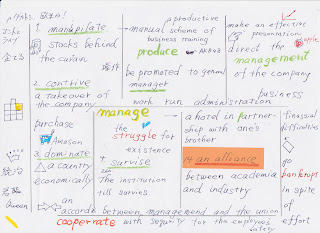 productive
1. manipulate
manual scheme of
business training
make an effective
presentation
stocks behind
produce AKB48
direct the people
the curtain
management
be promoted to general
manager
of the company
2. contrive
a takeover of
the company
work run administration
business
manage
purchase
the struggle for
existence
a hotel in partner-
ship with one's
brother
financial
difficulties
Amazon
3. dominate
a country
economically
4. survive
The institution
till survives
14. an alliance
between academia
and industry
go
bankrupt
in spite
of
effort
統治
Queen
an
accord between management and the union
cooperrate with security for the employee's
safety